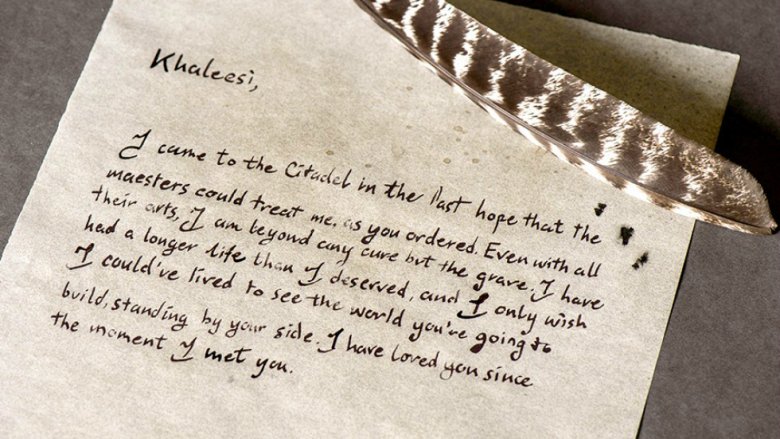 Khaleesi,
I came to the Citadel in the last hope that the
maesters could treat me, as you ordered. Even with all
their arts, I am beyond any cure but the grave. I have
had a longer life than I deserved, and I only wish
I could've lived to see the world you're going to
build, standing by your side. I have loved you since
the moment I met you.